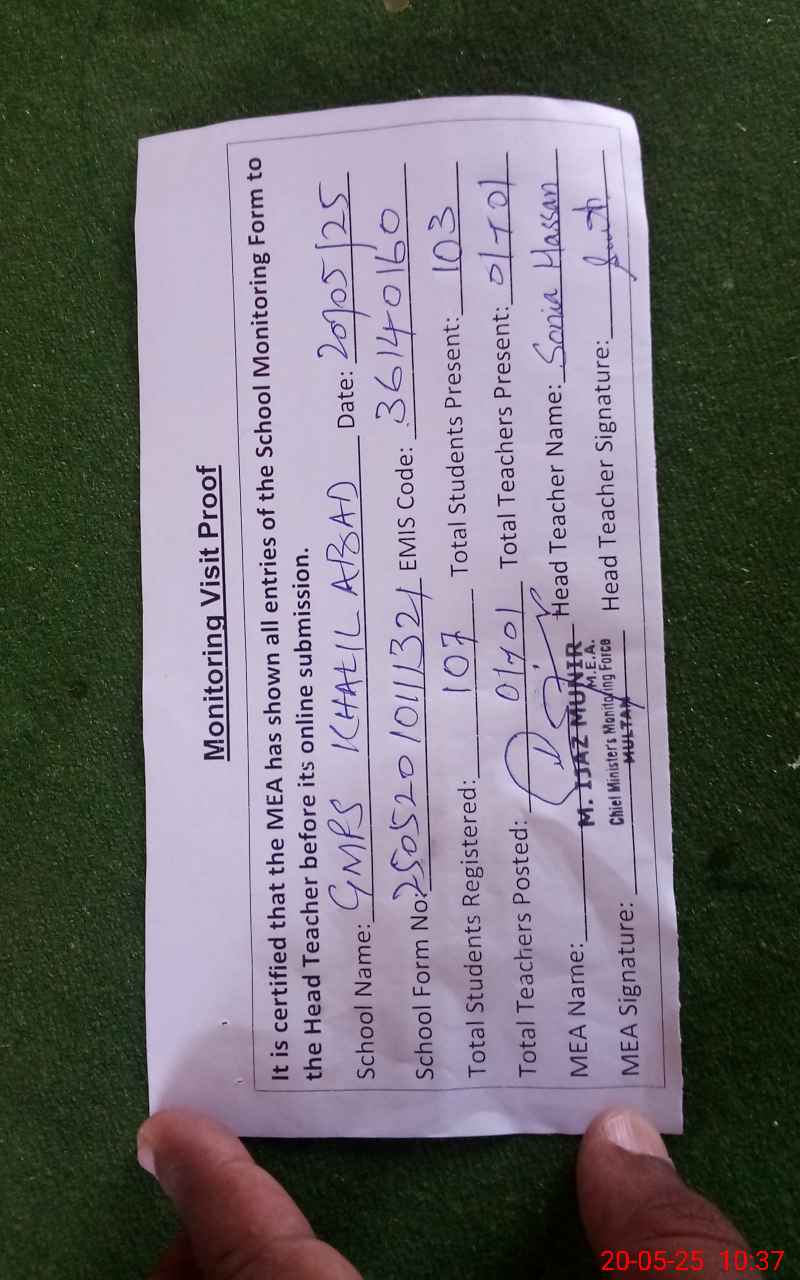 Monitoring Visit Proof
It is certified that the MEA has shown all entries of the School Monitoring Form to
the Head Teacher before its online submission.
School Name: GMPS KHALIL ABAD Date: 20/05/25
School Form No: 25052010111321 EMIS Code: 36140160
Total Students Registered: 107 Total Students Present: 103
Total Teachers Posted: 01+01 Total Teachers Present: 01+01
MEA Name: M. IJAZ MUNIR Head Teacher Name: Sonia Hassan
M.E.A.
Chief Minister's Monitoring Force
MULTAN
MEA Signature: Head Teacher Signature:
20-05-25 10:37